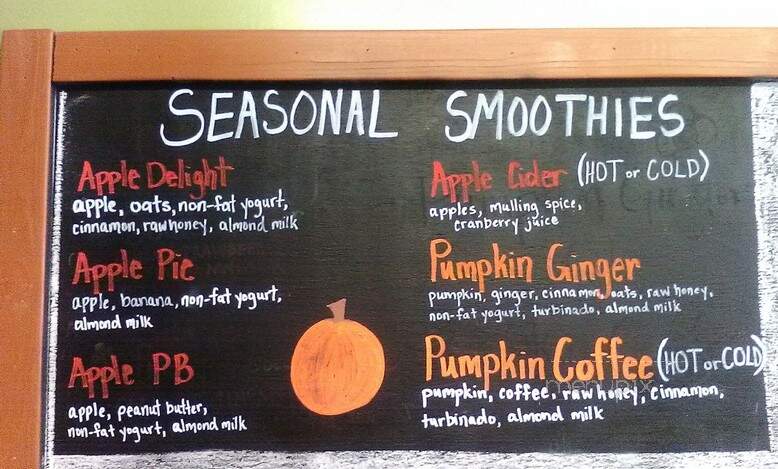 SEASONAL SMOOTHIES
Apple Delight
apple, oats, non-fat yogurt,
cinnamon, raw honey, almond milk
Apple Pie
apple, banana, non-fat yogurt,
almond milk
Apple PB
apple, peanut butter,
non-fat yogurt, almond milk
Apple Cider (HOT or COLD)
apples, mulling spice,
cranberry juice
Pumpkin Ginger
pumpkin, ginger, cinnamon, oats, raw honey,
non-fat yogurt, turbinado, almond milk
Pumpkin Coffee (HOT or COLD)
menupix
pumpkin, coffee, raw honey, cinnamon,
turbinado, almond milk